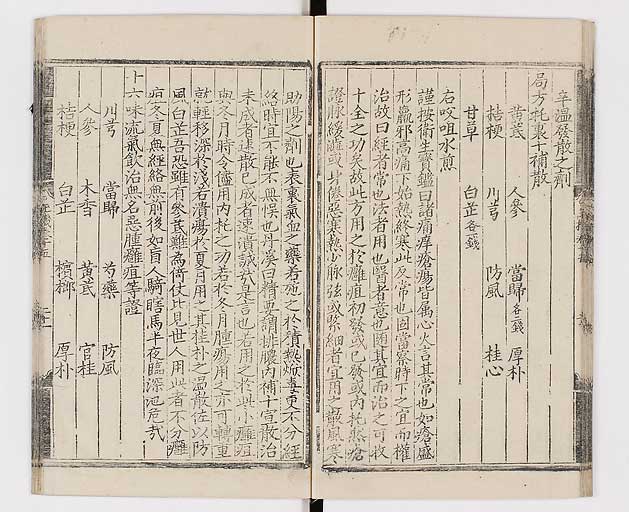 辛溫發散之劑
局方托裏十補散
黃芪 人參 當歸各二錢 厚朴
桔梗 川芎 防風 桂心
甘草 白芷各一錢
右㕮咀水煎
謹按衛生寶鑑曰諸痛痒瘡瘍皆屬心火言其常也如瘡盛
形羸邪高痛下始熱終寒此反常也固當察時下之宜而權
治故曰經者常也法者用也醫者意也隨其宜而治之可收
十全之功矣故此方用之於癰疽初發或已發或內托瘡
證脉緩澁或身倦惡寒熱少脉弦或於細者宜用之散風寒
助陽之劑也表裏氣血之藥若施之於積熱焮毒更不分經
絡時宜不能不無悞也丹溪曰精要謂排膿內補十宣散治
未成者速散已成者速潰誠哉是言也若用之於此小癰疽
與冬月時令儘用內托之功若於冬月腫瘍用之亦可轉重
就輕移深於淺若潰瘍於夏月用之其桂朴之溫散佐以防
風白芷吾恐雖有參芪難為倚仗比見世人用此者不分癰
疽冬夏無經絡無前後如盲人騎瞎馬半夜臨深池危哉
十六味流氣飲治無名惡腫癰疽等證
川芎 當歸 芍藥 防風
人參 木香 黃芪 官桂
桔梗 白芷 檳榔 厚朴